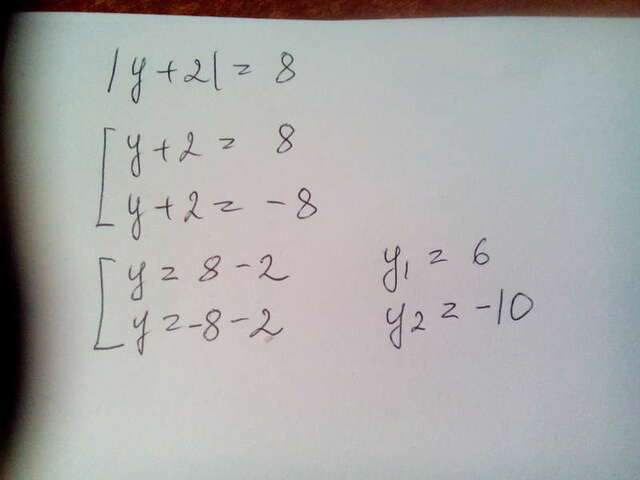 |y+2|= 8
y+2= 8
y+2= -8
y= 8-2 y₁= 6
y=-8-2 y₂= -10